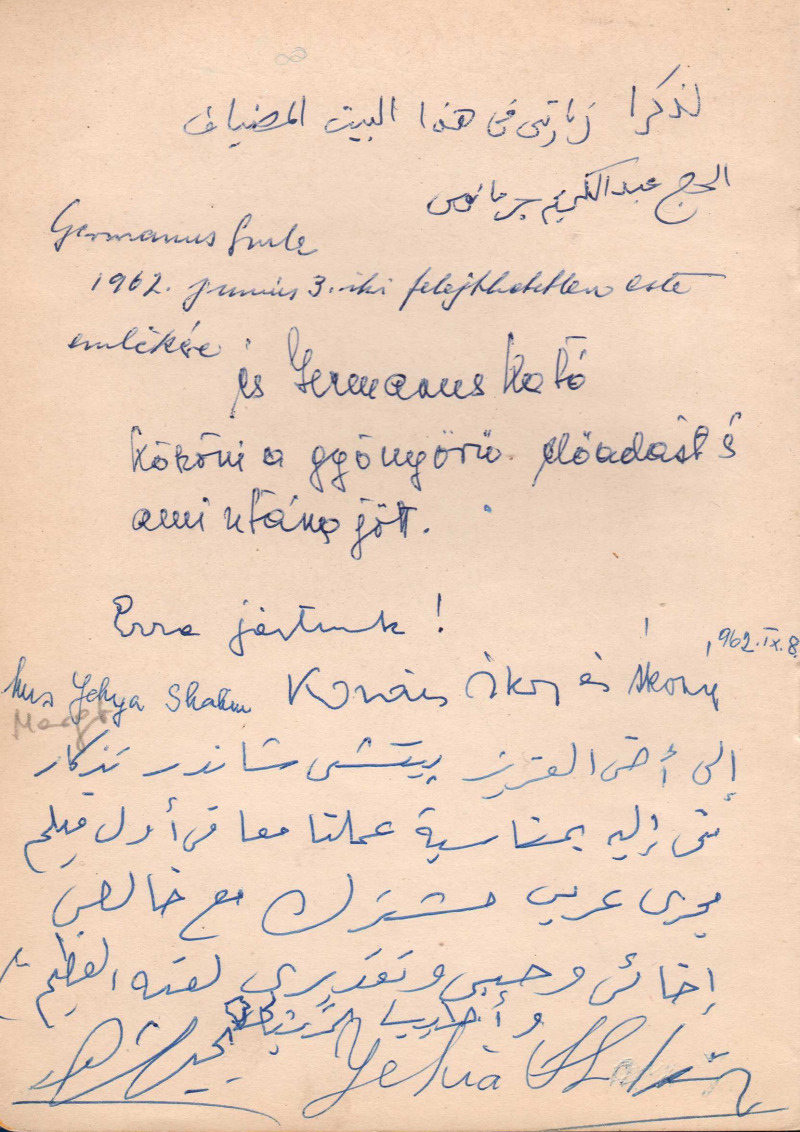 لذكرا زيارتي في هذا البيت المضياف
الحج عبد الكريم جرمانوس
Germanus Gyula
1962. junius 3.-iki felejthetetlen este
emlékére
és Germanus Kató
köszöni a gyönyörü előadást s
ami utána jött.
Erre jártunk!
1962. IX. 8.
Mrs Yehya Shahin Kovács Ákos és
إلى أخى العزيز بيتشى شاندر تذكار
منى إليه بمناسبة عملنا معا فى أول فيلم
مجرى عربى مشترك مع خالص
إخائى وحبى وتقديرى لفنه العظيم
و
يحيى شاهين
Yehia Shahin